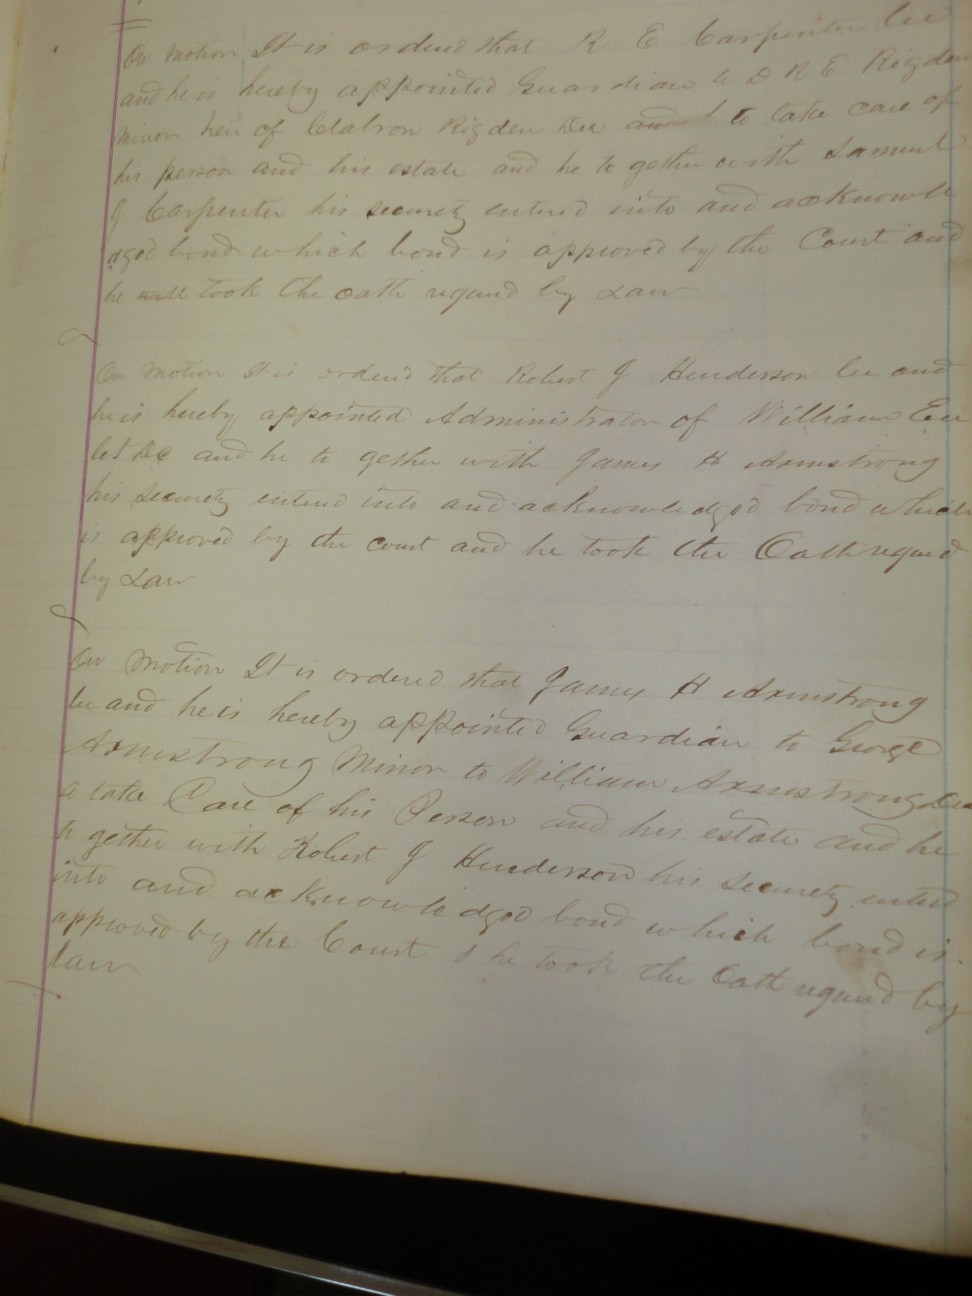 On motion It is ordered that R E Carpenter be
and he is hereby appointed Guardian to D R E Rigden
minor heir of Rigden Dec to take care of
his person and his estate and he to gether with Samuel
J Carpenter his securety entered into and acknowle
dged bond which bond is approved by the Court and
he took the oath requird by Law
On motion It is orderd that Robert J Henderson be and
he is hereby appointed Administrator of William
Dec and he to gether with James H Armstrong
his securety enterd into and acknowledged bond which
is approved by the court and he took the Oath requird
by Law
On motion It is ordered that James H Armstrong
be and he is hereby appointed Guardian to George
Armstrong Minor to William Armstrong Dec
to take Care of his Person and his estate and he
to gether with Robert J Henderson his securety enterd
into and acknowledged bond which bond is
approved by the Court & he took the Oath requird by
law